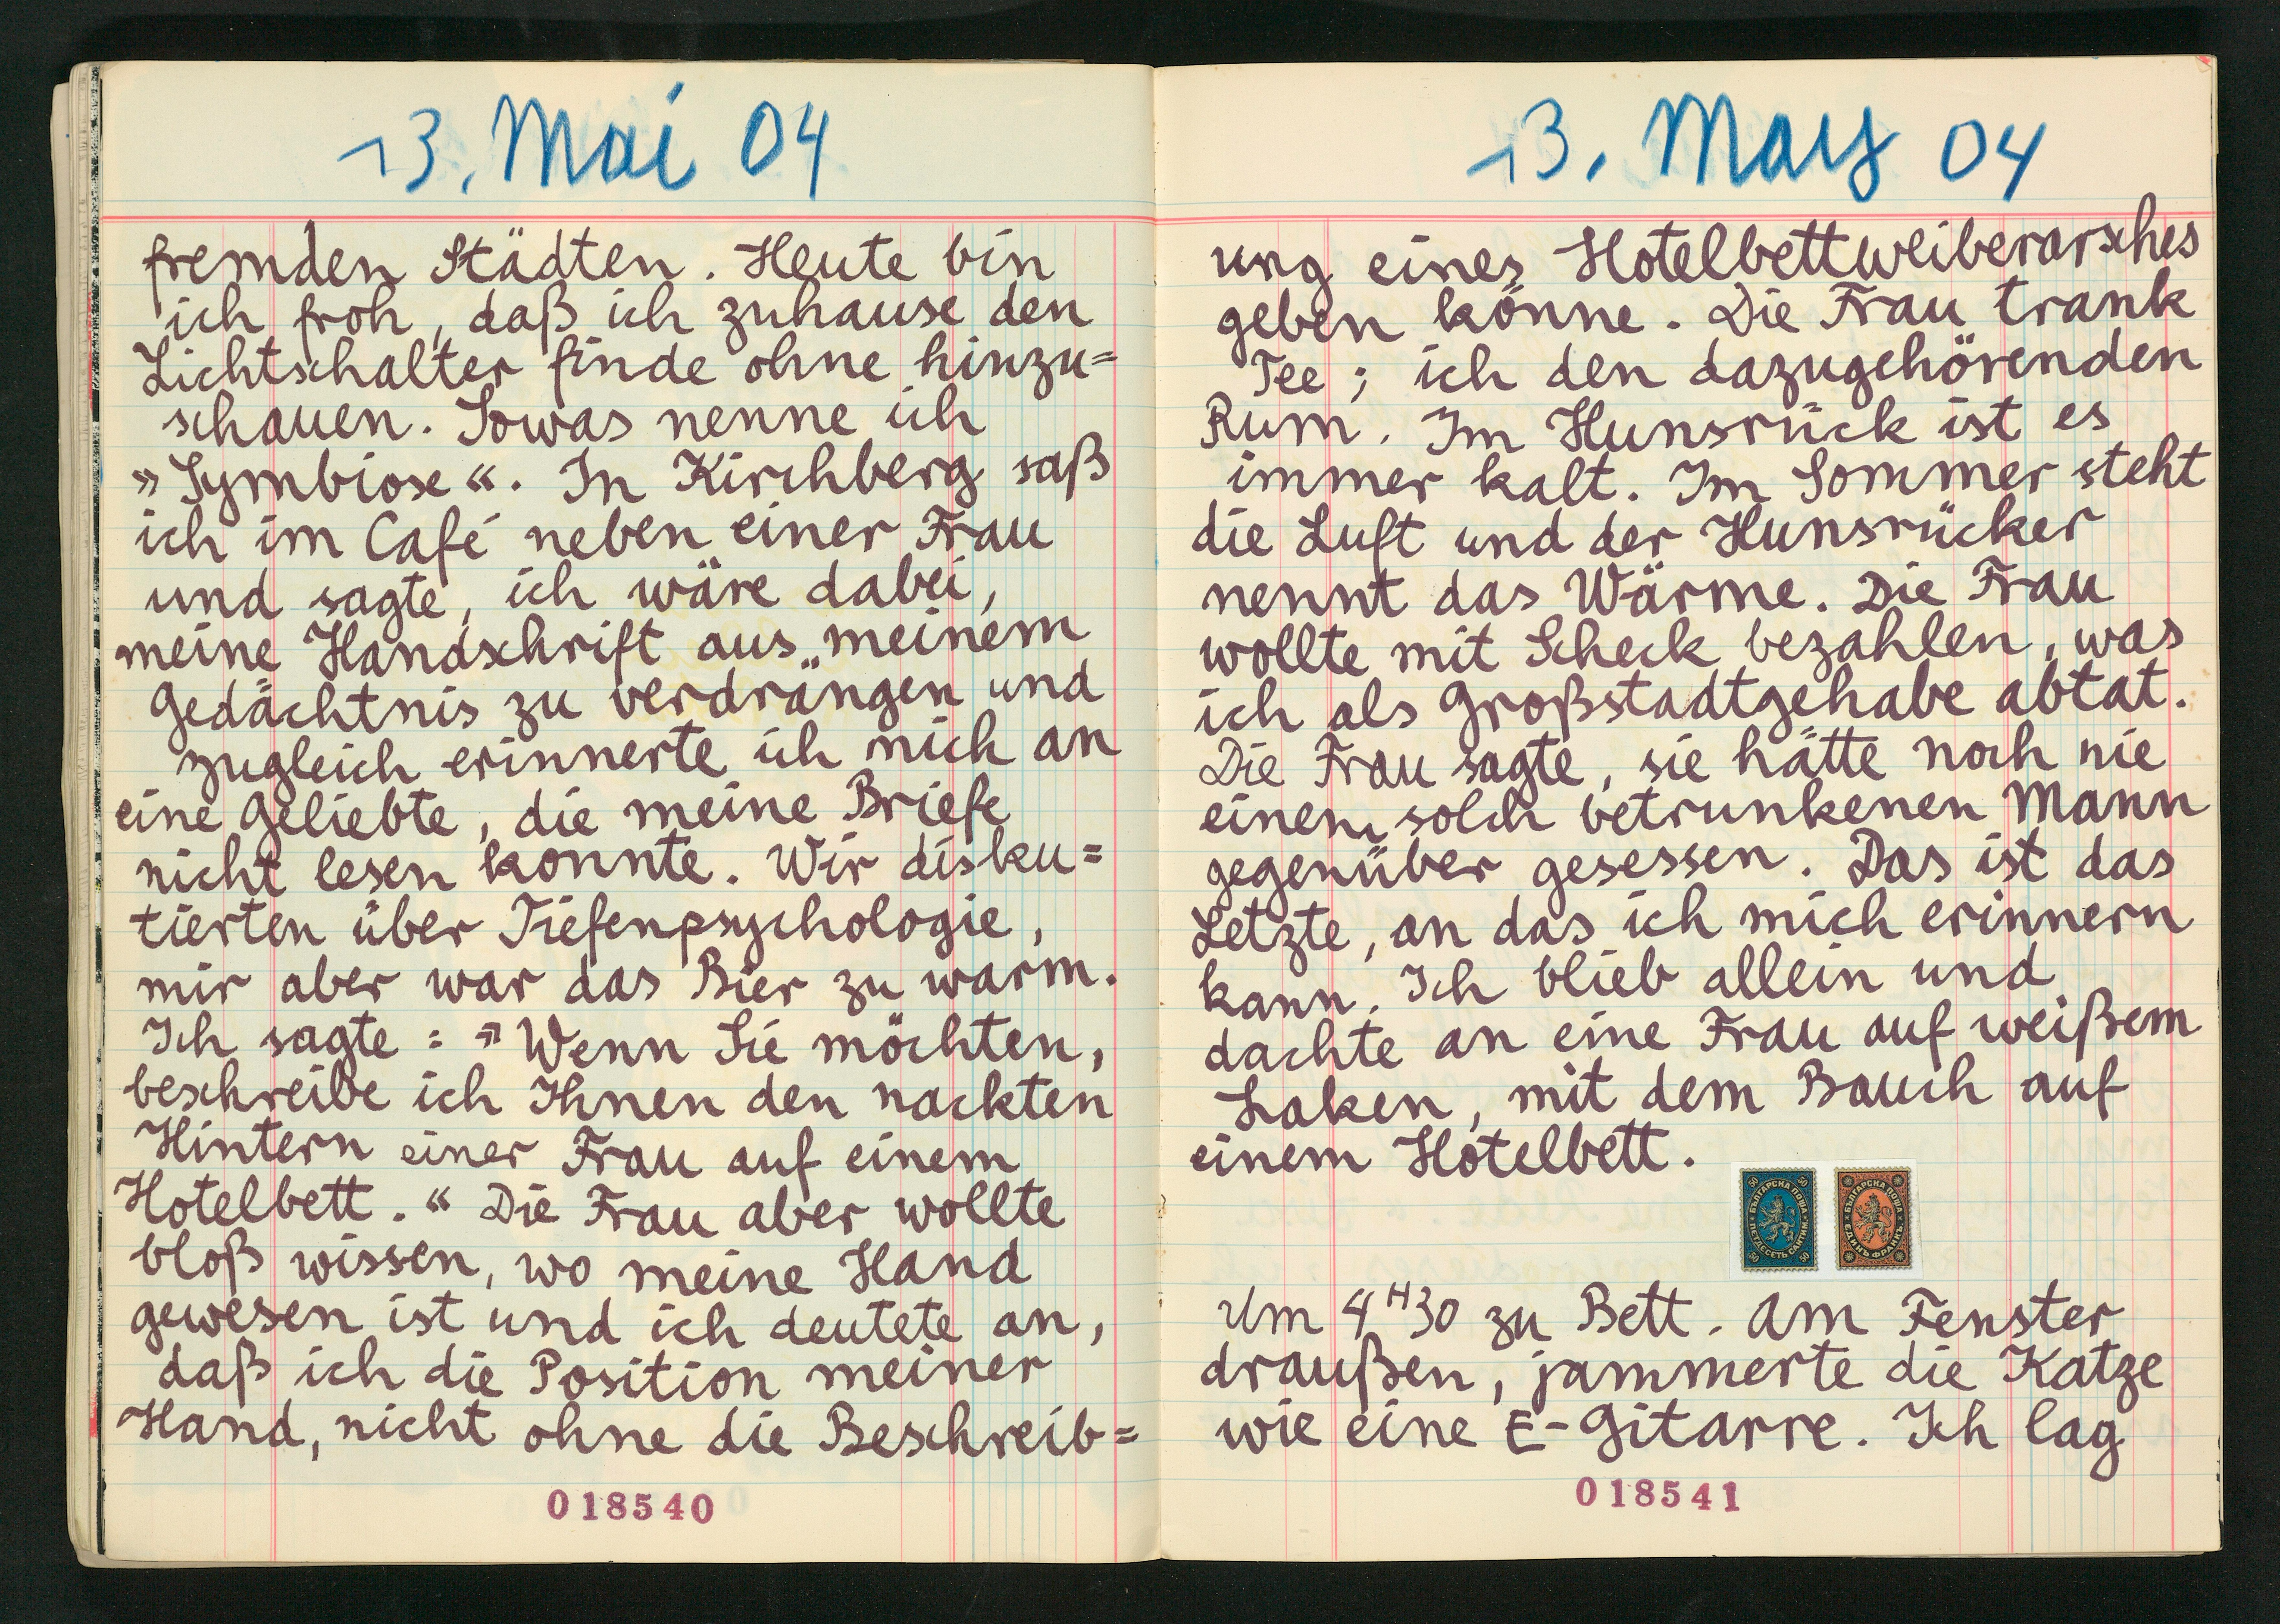 13. Mai 04
fremden Städten. Heute bin
ich froh, daß ich zuhause den
Lichtschalter finde ohne hinzu=
schauen. Sowas nenne ich
»Symbiose«. In Kirchberg saß
ich im Café neben einer Frau
und sagte, ich wäre dabei,
meine Handschrift aus meinem
Gedächtnis zu verdrängen und
zugleich erinnerte ich mich an
eine Geliebte, die meine Briefe
nicht lesen konnte. Wir disku=
tierten über Tiefenpsychologie,
mir aber war das Bier zu warm.
Ich sagte: »Wenn Sie möchten,
beschreibe ich Ihnen den nackten
Hintern einer Frau auf einem
Hotelbett.« Die Frau aber wollte
bloß wissen, wo meine Hand
gewesen ist und ich deutete an,
daß ich die Position meiner
Hand, nicht ohne die Beschreib=
018540
13. May 04
ung eines Hotelbettweiberarsches
geben könne. Die Frau trank
Tee; ich den dazugehörenden
Rum. Im Hunsrück ist es
immer kalt. Im Sommer steht
die Luft und der Hunsrücker
nennt das Wärme. Die Frau
wollte mit Scheck bezahlen, was
ich als Großstadtgehabe abtat.
Die Frau sagte, sie hätte noch nie
einem solch betrunkenen Mann
gegenüber gesessen. Das ist das
Letzte, an das ich mich erinnern
kann. Ich blieb allein und
dachte an eine Frau auf weißem
Laken, mit dem Bauch auf
einem Hotelbett.
50 50
БЪЛГАРСКА ПОЩА
ПЕТДЕСЕТЬ САНТИМ.
50 50
БЪЛГАРСКА ПОЩА
ЕДИНЪ ФРАНКЪ
Um 4H30 zu Bett. Am Fenster
draußen, jammerte die Katze
wie eine E-Gitarre. Ich lag
018541